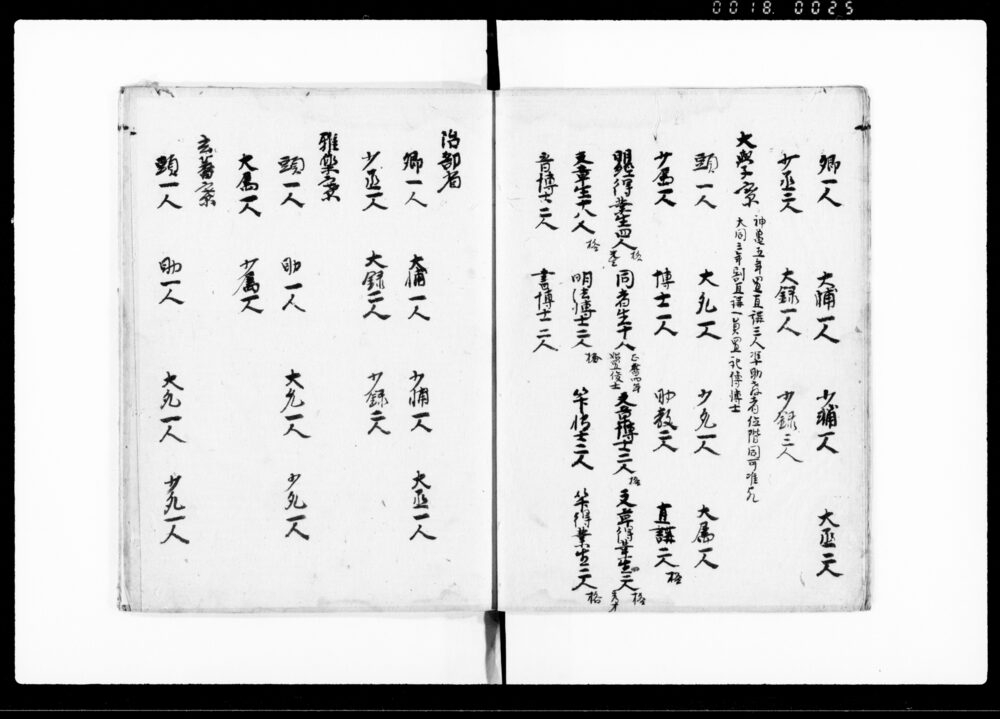 0018 0025
卿一人 大輔一人 少輔一人 大丞二人
少丞二人 大録一人 少録三人
大學寮
神亀五年置直講三人准助教者位階同可准允
大同三年割直講一員置記傳博士
頭一人 大允一人 少允一人 大属一人
少属一人 博士一人 助教二人 直講二人格
得業生四人格 同者生十人 文章博士二人格 文章得業生二人格
文章生十八人格 明法博士二人格 笇博士二人 笇得業生二人格
音博士二人 書博士二人
治部省
卿一人 大輔一人 少輔一人 大丞一人
少丞一人 大録二人 少録二人
雅樂寮
頭一人 助一人 大允一人 少允一人
大属一人 少属一人
玄蕃寮
頭一人 助一人 大允一人 少允一人